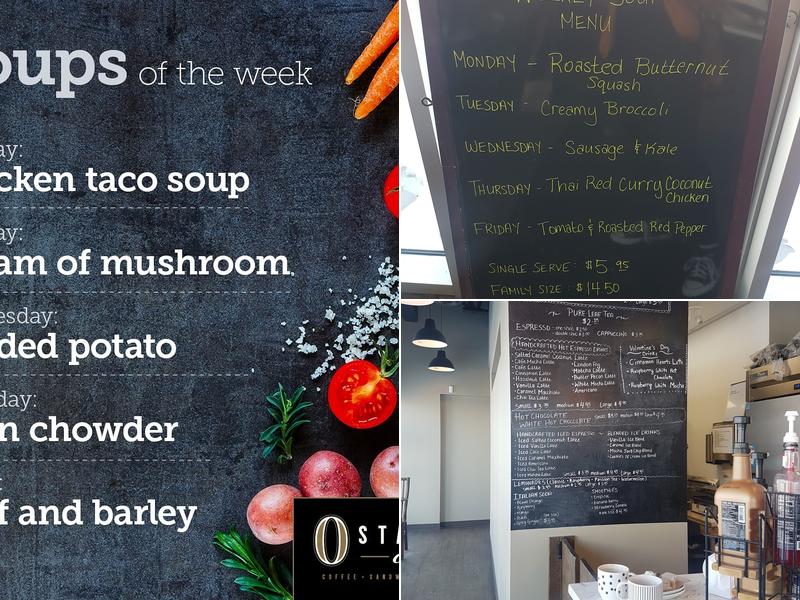 oups of the week
ay:
cken taco soup
ay:
am of mushroom.
esday:
ded potato
day:
n chowder
:
f and barley
OSTA
COFFEE • SANDW
MENU
MONDAY - Roasted Butternut
Squash
TUESDAY - Creamy Broccoli
WEDNESDAY - Sausage & Kale
THURSDAY - Thai Red Curry Coconut
Chicken
FRIDAY - Tomato & Roasted Red Pepper
SINGLE SERVE: $5.95
FAMILY SIZE: $14.50
~ PURE LEAF TEA ~
ESPRESSO
CAPPUCCINO
HANDCRAFTED HOT ESPRESSO DRINKS
• Salted Caramel Coconut Latte
• London Fog
• Cafe Mocha Latte
• Matcha Latte
• Cafe Latte
• Butter Pecan Latte
• Cinnamon Latte
• White Mocha Latte
• Hazelnut Latte
• Americano
• Vanilla Latte
• Caramel Macchiato
• Chai Tea Latte
Valentine's Day
Drinks
• Cinnamon Hearts Latte
• Raspberry White Hot
Chocolate
• Raspberry White Mocha
HOT CHOCOLATE
WHITE HOT CHOCOLATE
HANDCRAFTED ICED ESPRESSO ~ BLENDED ICE DRINKS
• Iced Salted Coconut Latte
• Vanilla Ice Blend
• Iced Vanilla Latte
• Caramel Ice Blend
• Iced Cafe Latte
• Mocha Java Chip Blend
• Iced Caramel Macchiato
• Cookies & Cream Ice Blend
• Iced Americano
• Iced Chai Tea Latte
• Iced Mocha Latte
LEMONADES (Classic • Raspberry • Passion Tea • Watermelon)
ITALIAN SODA
SMOOTHIES
• Blood Orange
• Raspberry
• Mango
• Strawberry Banana
• Peach